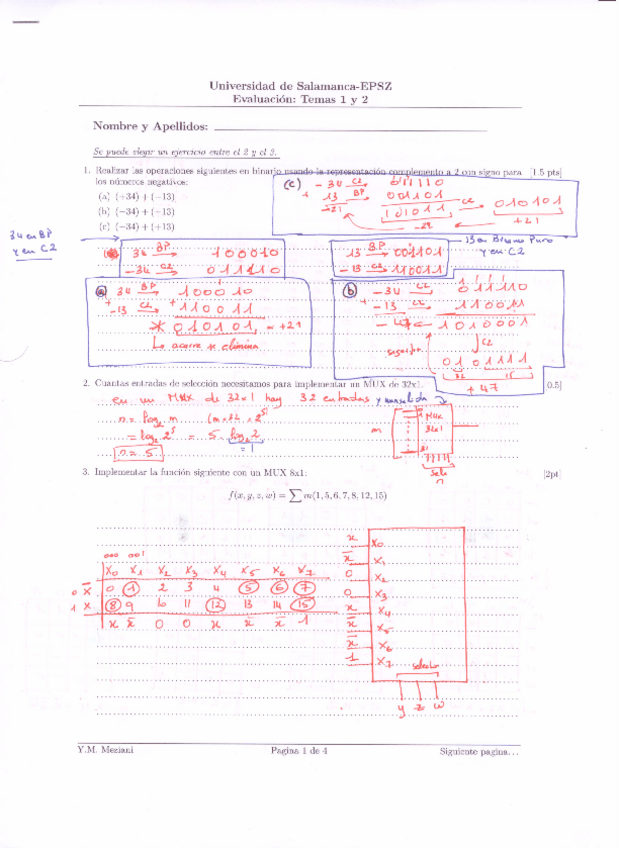 Universidad de Salamanca-EPSZ
Evaluación: Temas 1 y 2
Nombre y Apellidos:
Se puede elegir un ejercicio entre el 2 y el 3.
1. Realizar las operaciones siguientes en binario usando la representación complemento a 2 con signo para [1.5 pts]
los números negativos:
(a) (+34) + (−13)
(b) (−34) + (−13)
(c) (−34) + (+13)
(c) −34 C2→ 011110
+ 13 BP→ 001101
−21 ← 101011 C2→ 010101
−21 +21
34 en BP
y en C2
34 BP→ 100010
−34 C2→ 011110
13 BP→ 001101
−13 C2→ 110011
13 en Binario Puro
y en C2
(a) 34 BP→ 100010
+ −13 C2→ +110011
010101 = +21
Lo acarreo se elimina
(b) −34 C2→ 011110
+ −13 C2→ 110011
− 47 ← 1010001
C2
0101111
32 15
+47
2. Cuantas entradas de selección necesitamos para implementar un MUX de 32x1. [0.5]
en un MUX de 32x1 hay 32 entradas y una salida
n = log₂ m (m = 32 = 2⁵)
= log₂ 2⁵ = 5 log₂ 2
= 1
n = 5
m
MUX
32x1
31
sele
n
3. Implementar la función siguiente con un MUX 8x1: [2pt]
f(x, y, z, w) = ∑ m(1, 5, 6, 7, 8, 12, 15)
000 001
X₀ X₁ X₂ X₃ X₄ X₅ X₆ X₇
0 x̅ 0 1 2 3 4 5 6 7
1 x 8 9 10 11 12 13 14 15
x x̅ 0 0 x x̅ x̅ 1
x X₀
x̅ X₁
0 X₂
0 X₃
x X₄
x̅ X₅
x̅ X₆
1 X₇
y z w
Y.M. Meziani Pagina 1 de 4 Siguiente pagina...